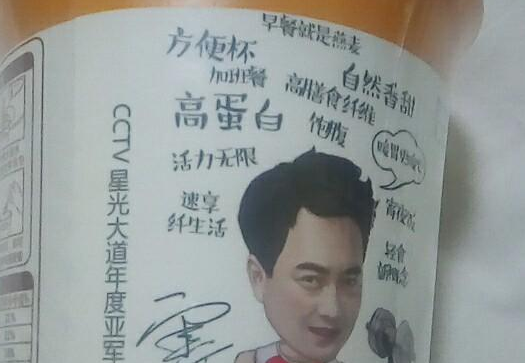 早餐就是燕麦
方便杯
加班餐
自然香甜
高膳食纤维
高蛋白
饱腹
活力无限
速享
纤生活
宵夜饭
轻食
CCTV 星光大道年度亚军